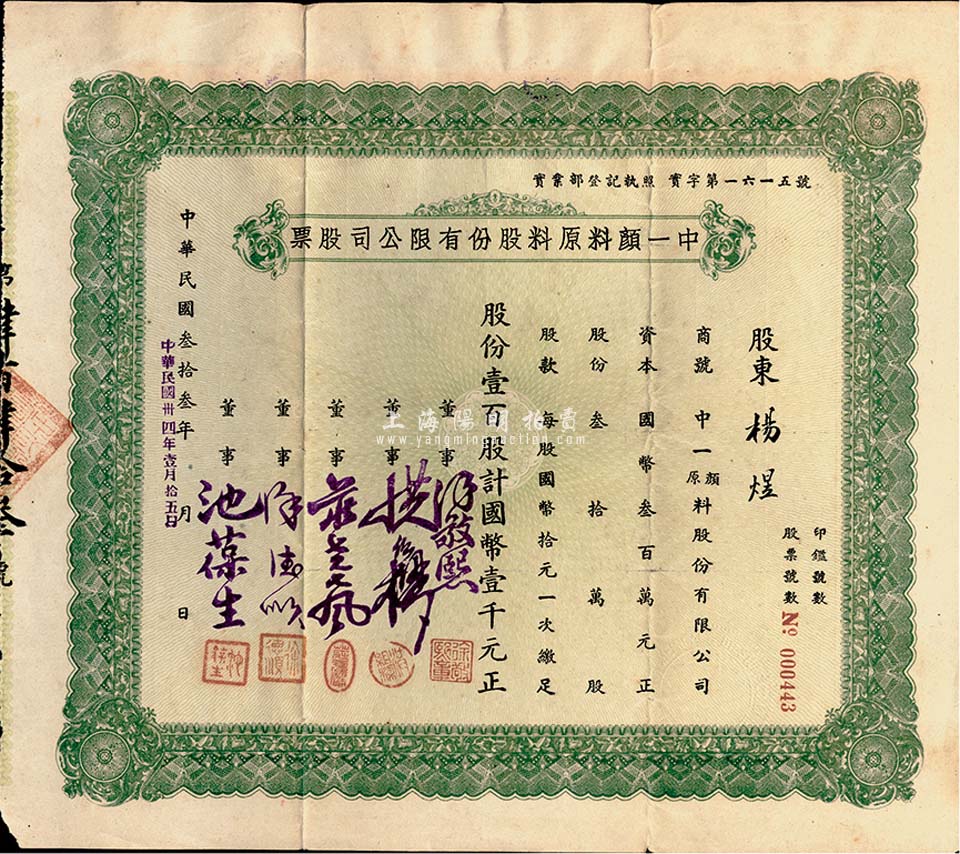 實業部登記執照 實字第一六一五號
中一顏料原料股份有限公司股票
印鑑號數
股票號數 No. 000443
股東 楊煜
商號 中一顏料原料股份有限公司
資本 國幣叁百萬元正
股份 叁拾萬股
股款 每股國幣拾元一次繳足
股份壹百股計國幣壹千元正
董事 徐敬熙
董事
董事
董事 徐德順
董事 池葆生
中華民國叁拾叁年 月 日
中華民國卅四年壹月拾五日
第肆百肆拾叁號
上海陽明拍賣
www.yangmingauction.com